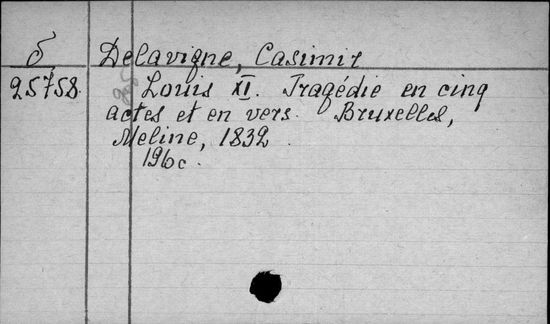 б Delavigne, Casimir
25758. Louis XI. Tragédie en cinq
actes et en vers. Bruxelles,
Meline, 1832.
196c.